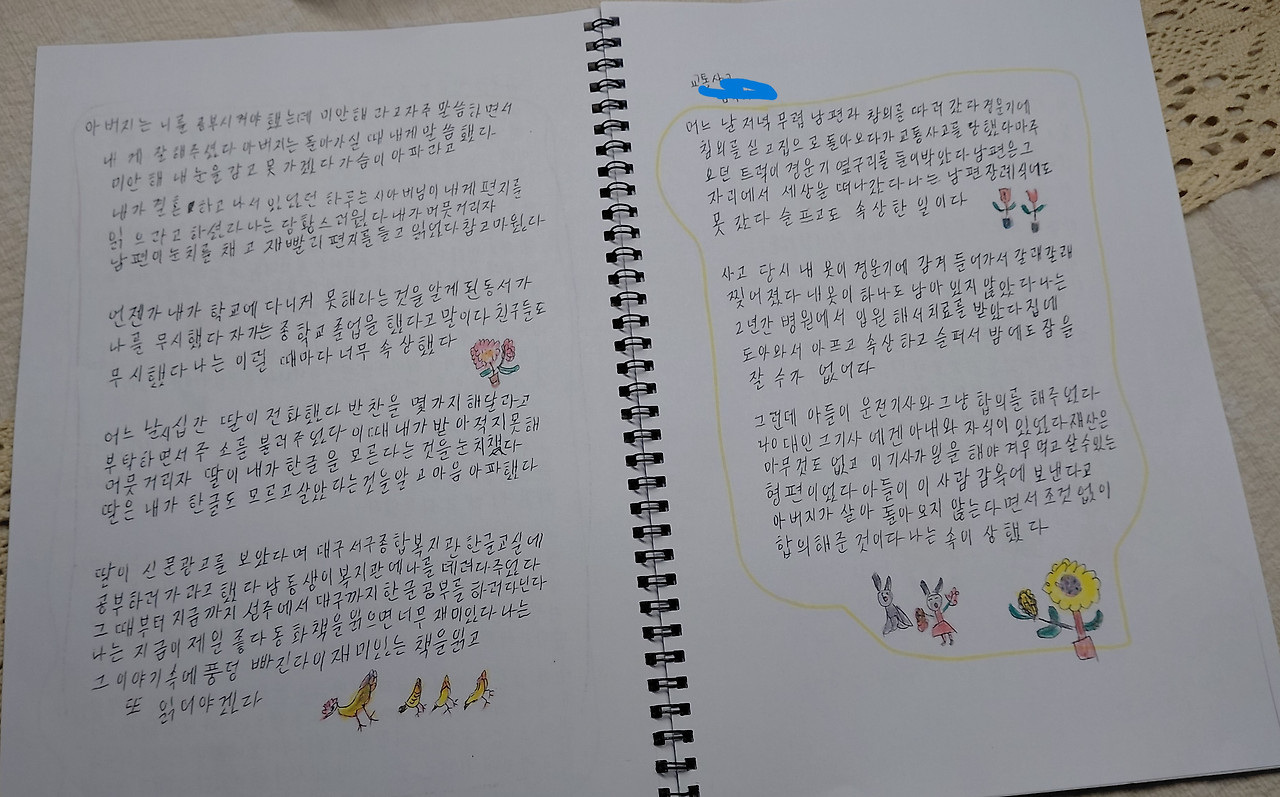 아버지는 너를 공부시켜야 했는데 미안해 라고 자주 말씀하면서
내게 잘해주셨다 아버지는 돌아가실 때 내게 말씀했다
미안해 내 눈을 감고 못 가겠다 가슴이 아파라고
내가 결혼 하고 나서 있었던 하루는 시아버님이 내게 편지를
읽으라고 하셨다 나는 당황스러웠다 내가 머뭇거리자
남편이 눈치를 채고 재빨리 편지를 들고 읽었다 참 고마웠다
언젠가 내가 학교에 다니거 못해라는 것을 알게 된 동서가
나를 무시했다 자가는 중학교 졸업을 했다고 말이다 친구들도
무시했다 나는 이럴 때마다 너무 속상했다
어느 날 시십간 딸이 전화했다 반찬을 몇가지 해달라고
부탁하면서 주소를 불러주었다 이때 내가 받아 적지 못해
머뭇거리자 딸이 내가 한글을 모른다는 것을 눈치챘다
딸은 내가 한글도 모르고 살았다는 것을 알고 마음 아파했다
딸이 신문광고를 보았다며 대구서구종합복지관 한글교실에
공부하러 가라고 했다 남동생이 복지관에 나를 데려다주었다
그때부터 지금까지 성주에서 대구까지 한글공부를 하러 다닌다
나는 지금이 제일 좋다 동화책을 읽으면 너무 재미있다 나는
그 이야기 속에 풍덩 빠진다 이 재미있는 책을 읽고
또 읽어야겠다
교통사고
어느 날 저녁 무렵 남편과 참외를 따러 갔다 경운기에
참외를 싣고 집으로 돌아오다가 교통사고를 당했다 마주
오던 트럭이 경운기 옆구리를 들이박았다 남편은 그
자리에서 세상을 떠나갔다 나는 남편 장례식에도
못 갔다 슬프고도 속상한 일이다
사고 당시 내 옷이 경운기에 감겨 들어가서 갈래갈래
찢어졌다 내 옷이 하나도 남아 있지 않았다 나는
2년간 병원에서 입원해서 치료를 받았다 집에
도아와서 아프고 속상하고 슬퍼서 밤에도 잠을
잘 수가 없어다
그런데 아들이 운전기사와 그냥 합의를 해주었다
20대인 그 기사에게 아내와 자식이 있었다 재산은
아무것도 없고 이 기사가 일을 해야 겨우 먹고 살 수 있는
형편이었다 아들이 이 사람 감옥에 보낸다고
아버지가 살아 돌아오지 않는다면서 조건 없이
합의해준 것이다 나는 속이 상했다